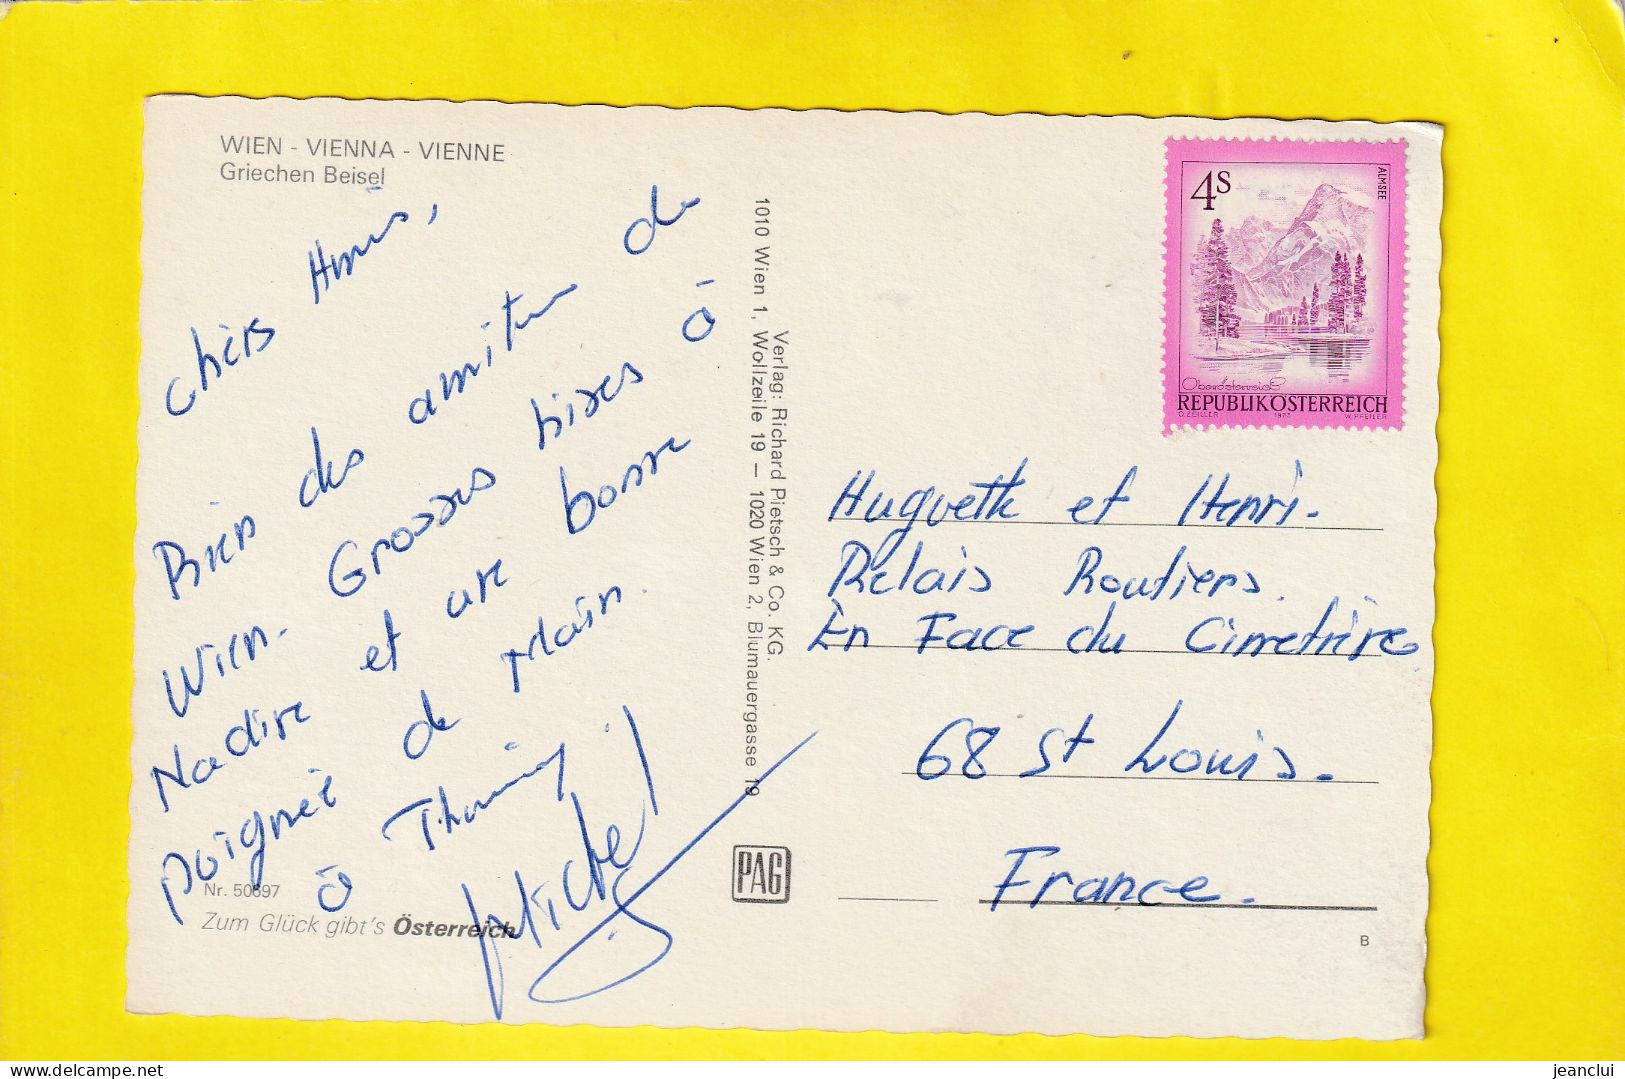 WIEN - VIENNA - VIENNE
Griechen Beisel
chers Amis,
Bien des amitiés de
Wien. Grosses bises à
Nadine et une bonne
poignée de Main.
à Thierry.
Michel
Nr. 50697
Zum Glück gibt's Österreich
Verlag: Richard Pietsch & Co. KG.
1010 Wien 1, Wollzeile 19 – 1020 Wien 2, Blumauergasse 19
PAG
4S
ALMSEE
Oberösterreich
REPUBLIK ÖSTERREICH
O. ZEILLER 1973 W. PFEILER
Huguette et Henri.
Relais Routiers.
En Face du Cimetière
68 St Louis.
France.
B
jeanclui